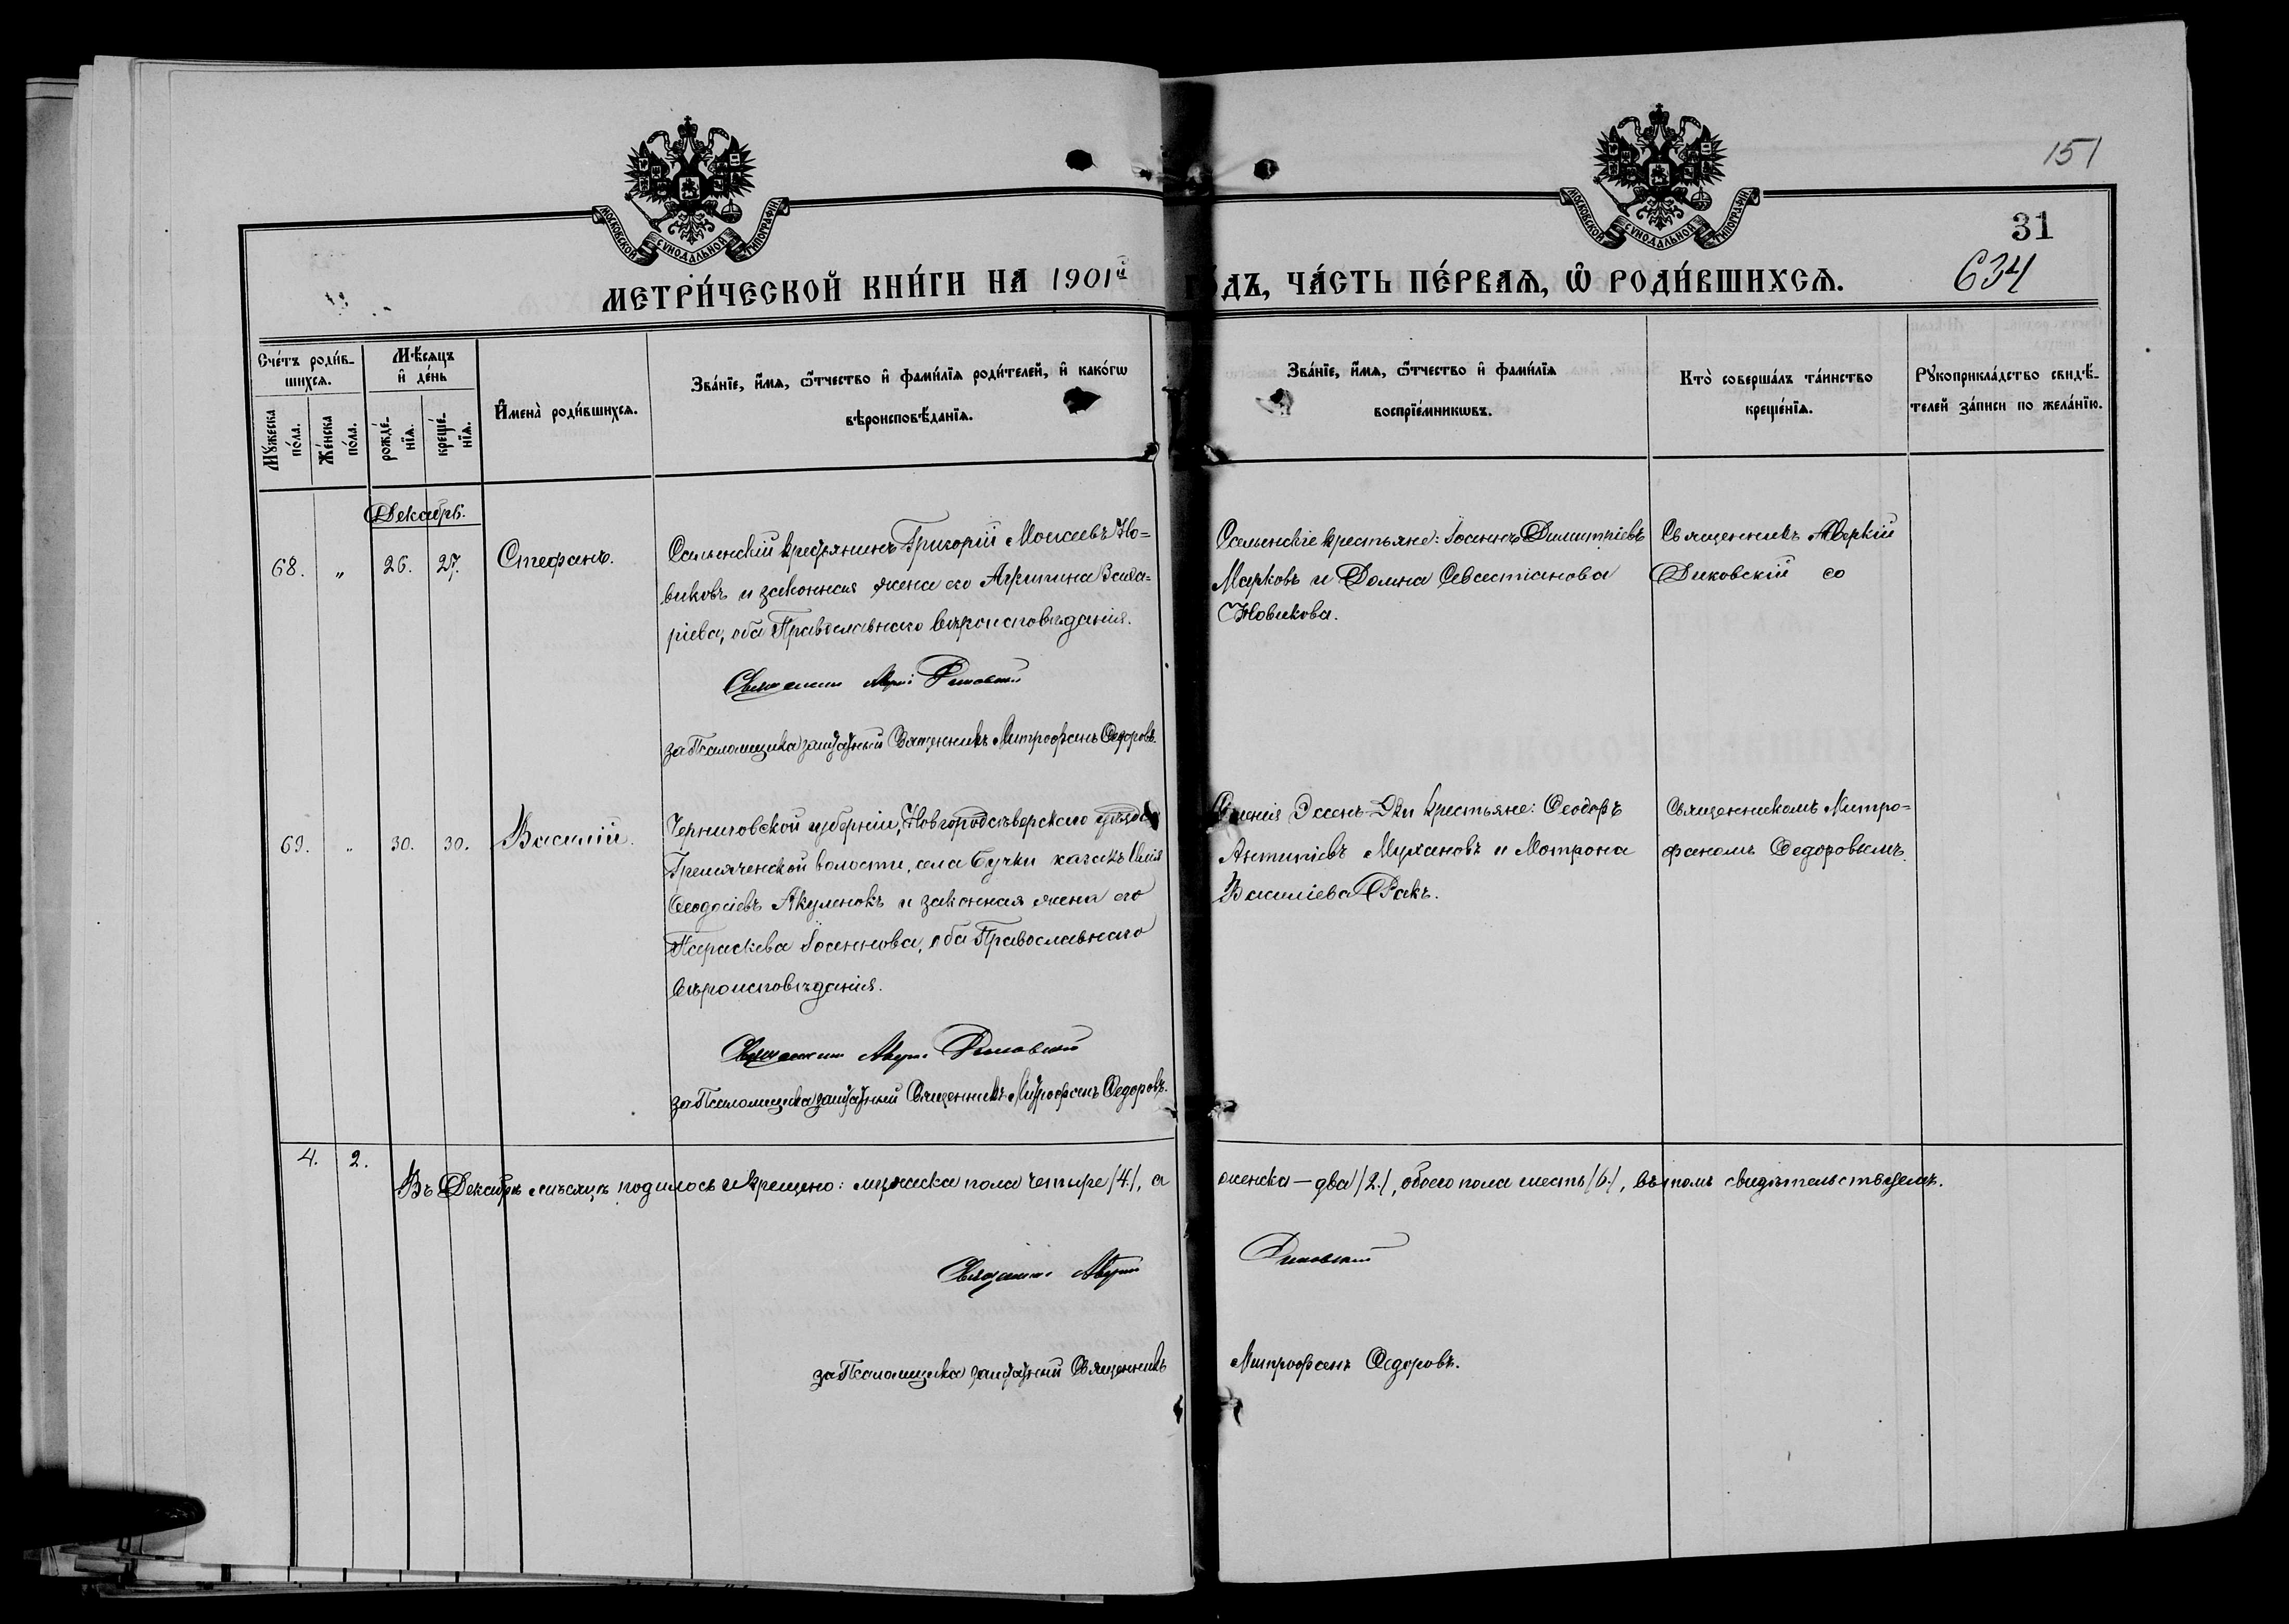 151
31
634
МОСКОВСКОЙ СѴНОДАЛЬНОЙ ТИПОГРАФІИ
МОСКОВСКОЙ СѴНОДАЛЬНОЙ ТИПОГРАФІИ
МЕТРИ́ЧЕСКОЙ КНИ́ГИ НА 1901й ГО́ДЪ, ЧА́СТЬ ПЕ́РВАѦ, Ѡ҆ РОДИ́ВШИХСѦ.
Сче́тъ роди́в-
шихсѧ.
Мꙋ́жеска
по́ла.
Же́нска
по́ла.
Мѣ́сѧцъ
и҆ де́нь
рожде́-
нїѧ.
креще́-
нїѧ.
И҆мена̀ роди́вшихсѧ.
Зва́нїе, и҆́мѧ, ѻ҆́тчество и҆ фами́лїѧ роди́телей, и҆ како́гѡ
вѣроисповѣ́данїѧ.
Зва́нїе, и҆́мѧ, ѻ҆́тчество и҆ фами́лїѧ
воспрїе́мникѡвъ.
Кто̀ соверша́лъ та́инство
креще́нїѧ.
Рꙋкоприкла́дство свидѣ́-
телей за́писи по жела́нїю.
Декабрь.
68. „ 26. 27. Стефанъ.
крестьянинъ Григорій Моисеевъ Но-
виковъ и законная жена его Агрипина Заха-
ріева, оба Православнаго вѣроисповѣданія.
Священникъ Аверкій
за Псаломщика заштатный Священникъ Митрофанъ Ѳедоровъ.
крестьяне: Іоаннъ Димитріевъ
Марковъ и Домна Севастіанова
Новикова.
Священникъ Аверкій
со
69. „ 30. 30. Василій.
Черниговской губерніи, Новгородсѣверскаго уѣзда
Гремяченской волости, села Бучки казакъ Илія
Ѳеодосіевъ Акуленокъ и законная жена его
Параскева Іоаннова, оба Православнаго
вѣроисповѣданія.
Священникъ Аверкій
за Псаломщика заштатный Священникъ Митрофанъ Ѳедоровъ.
крестьяне: Ѳеодоръ
Антипіевъ Мухановъ и Мотрона
Василіева Ракъ.
Священникомъ Митро-
фаномъ Ѳедоровымъ.
4. 2.
Въ Декабрѣ мѣсяцѣ родилось и крещено: мужеска пола четыре /4/, а женска — два /2/, обоего пола шесть /6/, въ томъ свидѣтельствуемъ.
Священникъ Аверкій
за Псаломщика заштатный Священникъ Митрофанъ Ѳедоровъ.